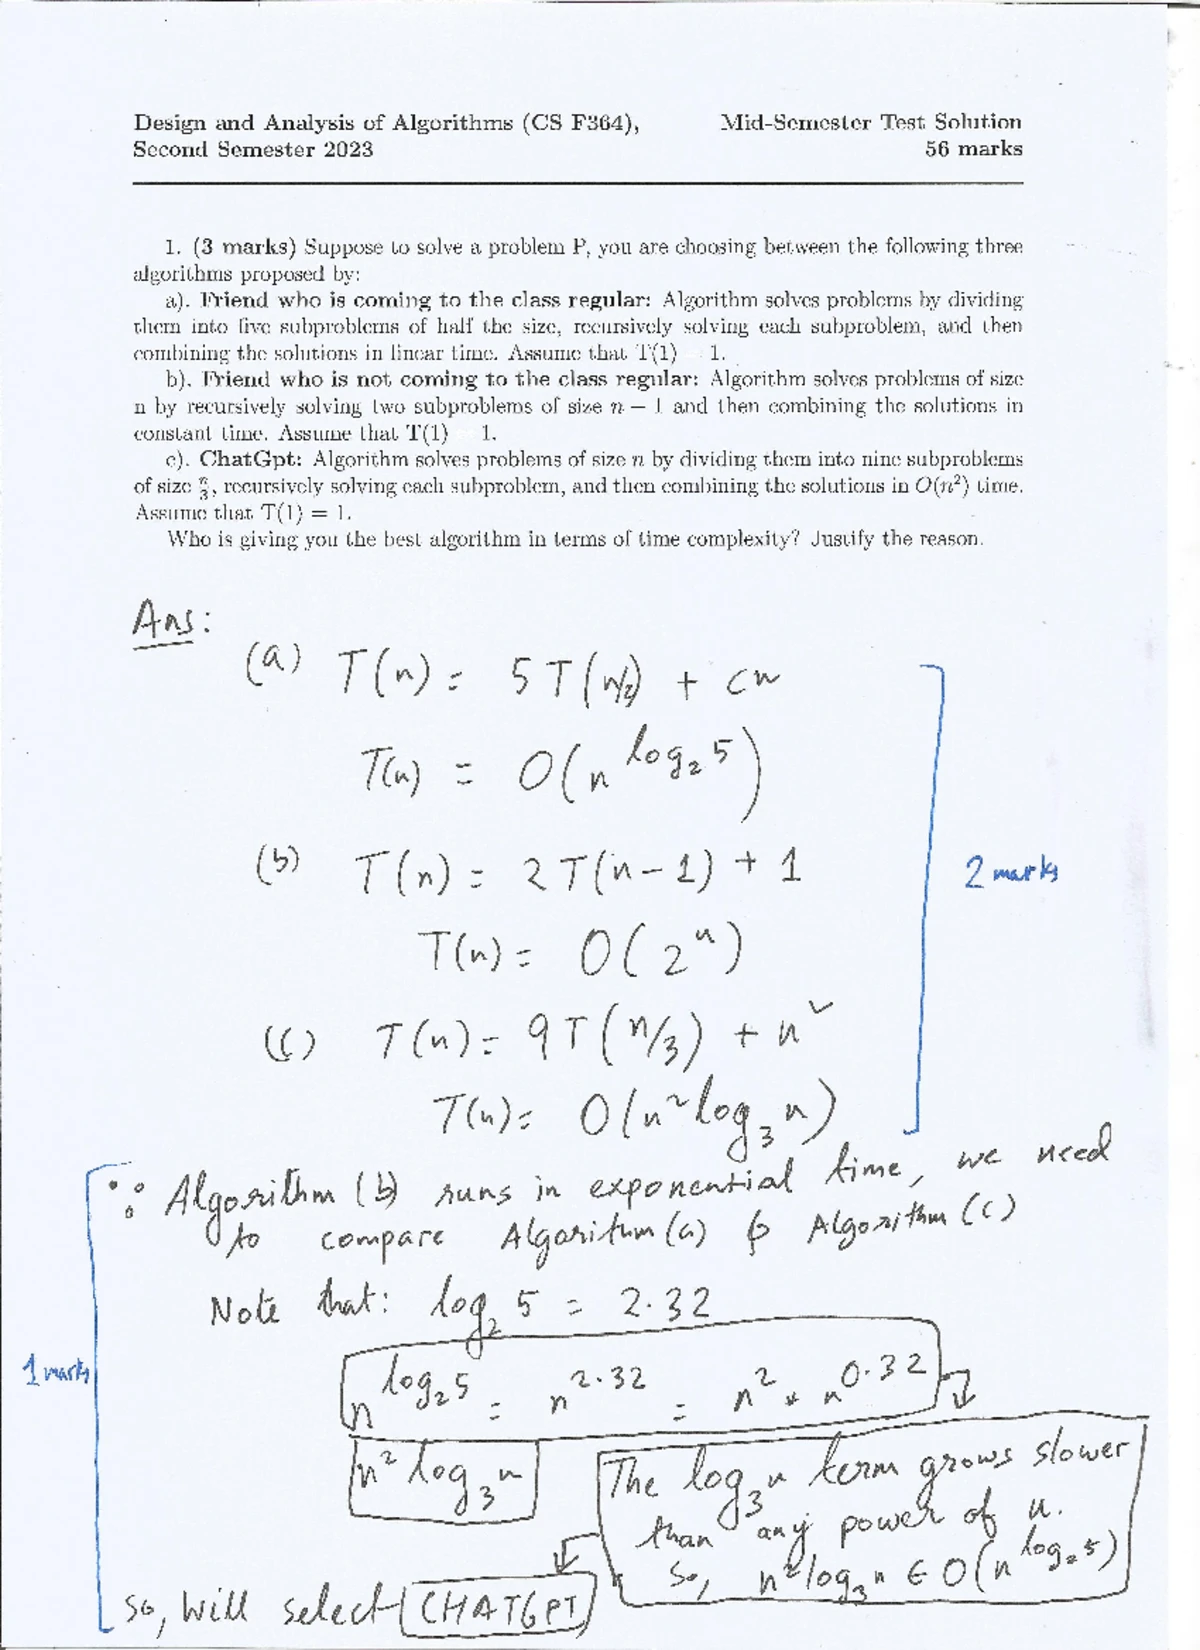 Design and Analysis of Algorithms (CS F364), Mid-Semester Test Solution
Second Semester 2023 56 marks
1. (3 marks) Suppose to solve a problem P, you are choosing between the following three
algorithms proposed by:
a). Friend who is coming to the class regular: Algorithm solves problems by dividing
them into five subproblems of half the size, recursively solving each subproblem, and then
combining the solutions in linear time. Assume that T(1) = 1.
b). Friend who is not coming to the class regular: Algorithm solves problems of size
n by recursively solving two subproblems of size n − 1 and then combining the solutions in
constant time. Assume that T(1) = 1.
c). ChatGpt: Algorithm solves problems of size n by dividing them into nine subproblems
of size n/3, recursively solving each subproblem, and then combining the solutions in O(n²) time.
Assume that T(1) = 1.
Who is giving you the best algorithm in terms of time complexity? Justify the reason.
Ans:
(a) T(n) = 5T(n/2) + cn
T(n) = O(n^log₂5)
(b) T(n) = 2T(n-1) + 1
2 marks
T(n) = O(2ⁿ)
(c) T(n) = 9T(n/3) + n²
T(n) = O(n² log₃ n)
∵ Algorithm (b) runs in exponential time, we need
to compare Algorithm (a) & Algorithm (c)
Note that: log₂ 5 = 2.32
1 marks
n^log₂5 = n^2.32 = n² * n^0.32
n² log₃ n
The log₃ n term grows slower
than any power of n.
So, n² log₃ n ∈ O(n^log₂5)
So, will select CHATGPT